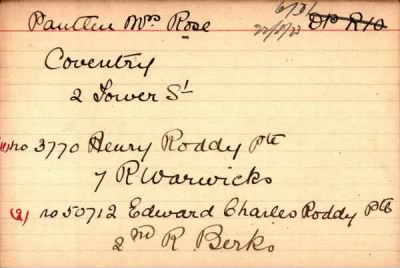 Pantten Mrs Rose
6/31
22/8/23
DP R/O
Coventry
2 Tower St
(1) no 3770 Henry Roddy Pte
7 R Warwicks
(2) no 50712 Edward Charles Roddy Pte
2nd R. Berks